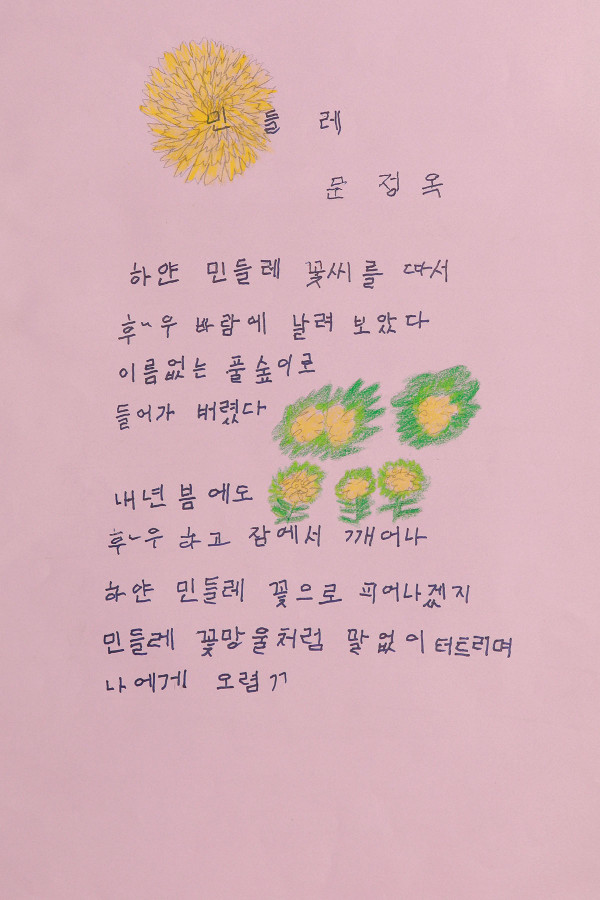 민들레
문정옥
하얀 민들레 꽃씨를 따서
후~우 바람에 날려 보았다
이름없는 풀숲이로
들어가 버렸다
내년 븜에도
후~우 하고 잠에서 깨어나
하얀 민들레 꽃으로 피어나겠지
민들레 꽃망울처럼 말없이 터트리며
나에게 오렴